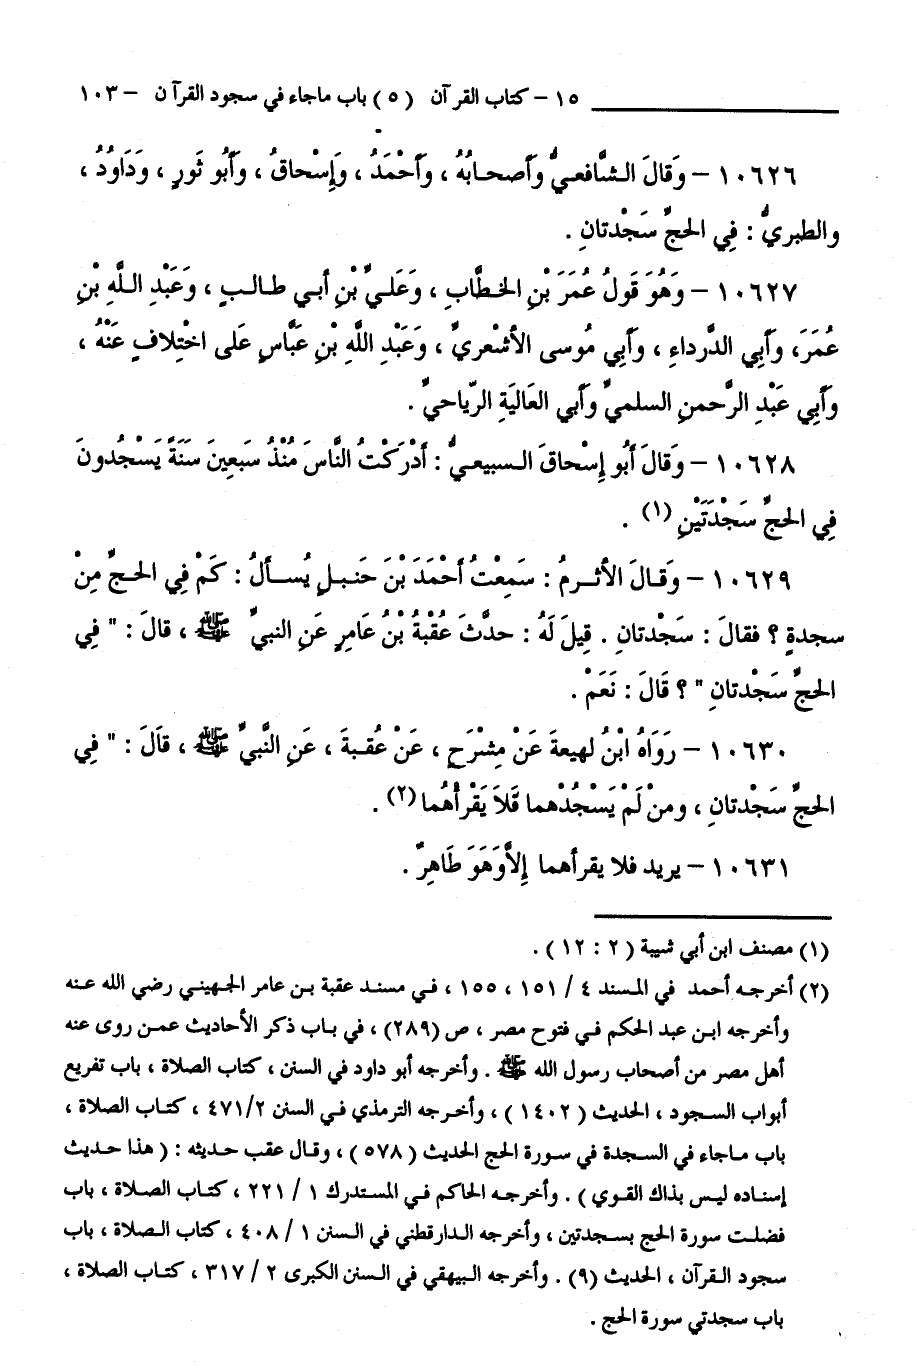 ١٥ – كتاب القرآن (٥) باب ماجاء في سجود القرآن – ١٠٣
١٠٦٢٦ – وَقالَ الشَّافعيُّ وأَصحابُهُ ، وأَحْمَدُ ، وإِسْحاقُ ، وأَبُو ثَورٍ ، وَدَاوُدُ ،
والطبريُّ : فِي الحجِّ سَجْدتانِ .
١٠٦٢٧ – وَهُوَ قَولُ عُمَرَ بْنِ الخطَّابِ ، وَعَليِّ بْنِ أبي طالبٍ ، وَعَبْدِ اللَّهِ بْنِ
عُمَرَ، وأَبِي الدَّرداءِ ، وأَبِي مُوسى الأشْعريِّ ، وَعَبْدِ اللَّهِ بْنِ عَبَّاسٍ عَلى اخْتِلافٍ عَنْهُ ،
وأَبِي عَبْدِ الرَّحمنِ السلميِّ وأَبي العَاليَةِ الرِّياحيِّ .
١٠٦٢٨ – وَقالَ أَبُو إِسْحاقَ السبيعيُّ : أَدْرَكْتُ النَّاسَ مُنْذُ سَبعِينَ سَنَةً يَسْجُدونَ
فِي الحجِّ سَجْدَتَيْنِ (١) .
١٠٦٢٩ – وَقَالَ الأثرمُ : سَمِعْتُ أَحْمَدَ بْنَ حَنبلٍ يُسألُ : كَمْ فِي الحجِّ مِنْ
سجدةٍ ؟ فقالَ : سَجْدتانِ . قِيلَ لَهُ : حدَّثَ عُقْبةُ بْنُ عَامِرٍ عَنِ النبيِّ ﷺ ، قالَ : " فِي
الحجِّ سَجْدتانِ " ؟ قَالَ : نَعَمْ .
١٠٦٣٠ – رَوَاهُ ابْنُ لهيعةَ عَنْ مِشْرَحٍ ، عَنْ عُقبةَ ، عَنِ النَّبيِّ ﷺ ، قَالَ : " فِي
الحجِّ سَجْدتانِ ، ومنْ لَمْ يَسْجُدْهما فَلاَ يَقْرأْهُما (٢) .
١٠٦٣١ – يريد فلا يقرأهما إِلاَّ وَهَوَ طَاهِرٌ .
(١) مصنف ابن أبي شيبة (٢ : ١٢) .
(٢) أخرجه أحمد في المسند ٤ / ١٥١ ، ١٥٥ ، في مسند عقبة بن عامر الجهيني رضي الله عنه
وأخرجه ابن عبد الحكم في فتوح مصر ، ص (٢٨٩) ، في باب ذكر الأحاديث عمن روى عنه
أهل مصر من أصحاب رسول الله ﷺ . وأخرجه أبو داود في السنن ، كتاب الصلاة ، باب تفريع
أبواب السجود ، الحديث (١٤٠٢) ، وأخرجه الترمذي في السنن ٤٧١/٢ ، كتاب الصلاة ،
باب ماجاء في السجدة في سورة الحج الحديث (٥٧٨) ، وقال عقب حديثه : (هذا حديث
إسناده ليس بذاك القوي) . وأخرجه الحاكم في المستدرك ١ / ٢٢١ ، كتاب الصلاة ، باب
فضلت سورة الحج بسجدتين ، وأخرجه الدارقطني في السنن ١ / ٤٠٨ ، كتاب الصلاة ، باب
سجود القرآن ، الحديث (٩) . وأخرجه البيهقي في السنن الكبرى ٢ / ٣١٧ ، كتاب الصلاة ،
باب سجدتي سورة الحج .